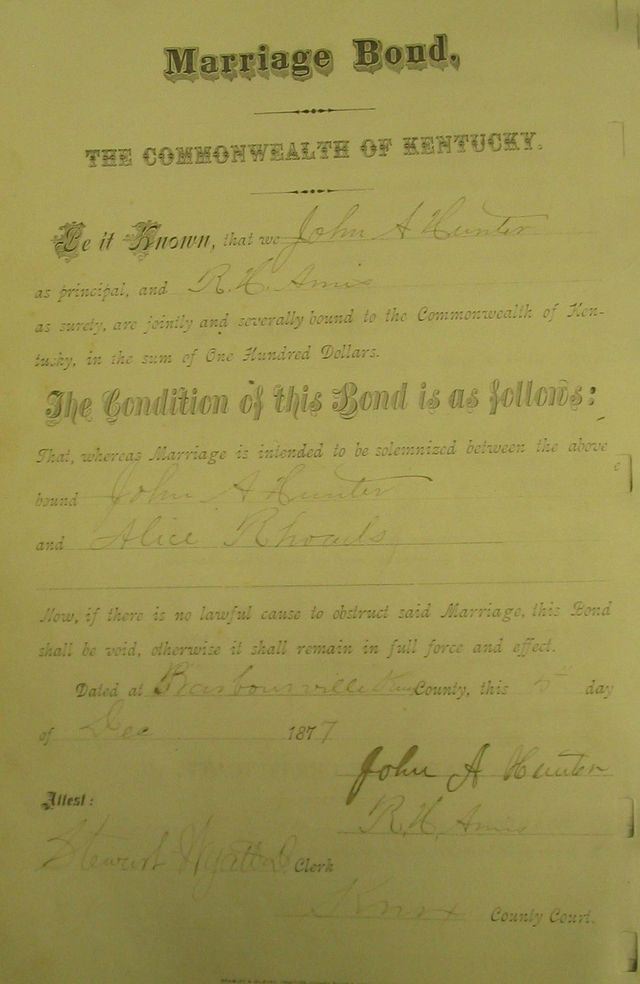 Marriage Bond.
THE COMMONWEALTH OF KENTUCKY.
Be it Known, that we John A Hunter
as principal, and R. H. Amis
as surety, are jointly and severally bound to the Commonwealth of Ken-
tucky, in the sum of One Hundred Dollars.
The Condition of this Bond is as follows:
That, whereas Marriage is intended to be solemnized between the above
bound John A Hunter
and Alice Rhoads
Now, if there is no lawful cause to obstruct said Marriage, this Bond
shall be void, otherwise it shall remain in full force and effect.
Dated at Barbourville County, this 5th day
of Dec 1877
John A Hunter
Attest:
R. H. Amis
Stewart Wyatt Clerk
Knox County Court.